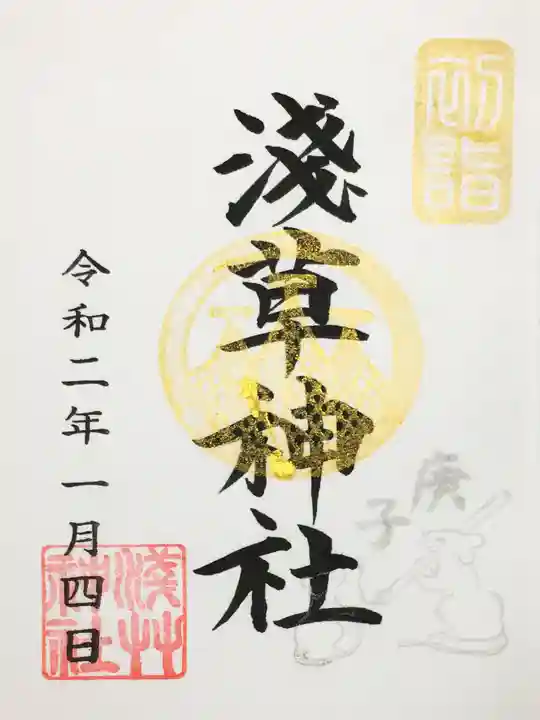 初詣
淺草神社
庚子
令和二年一月四日
淺草
神社